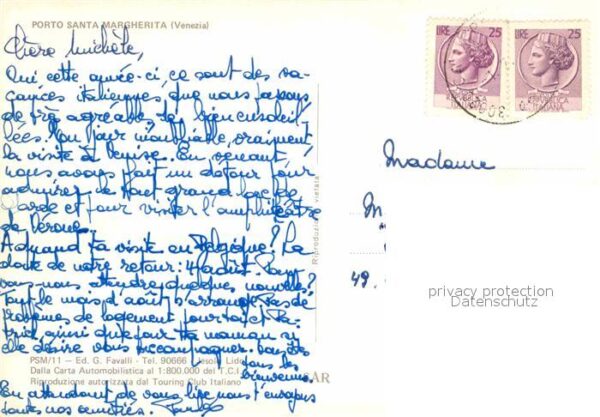 PORTO SANTA MARGHERITA (Venezia)
Chère Michèle,
Oui cette année-ci, ce sont des va-
cances italiennes que nous passons
de très agréables et bien ensoleil-
lées. Un jour inoubliable, vraiment,
la visite à Venise. En venant,
nous avons fait un détour pour
admirer le haut grand lac de
Garde et pour visiter l'amphithéâtre
de Vérone.
A quand ta visite en Belgique? La
date de votre retour: 4 août.
vous nous attendre quelques nouvelles?
Tout le mois d'août s'arrange pas de
problèmes de logement pour toi et Pa-
trick, ainsi que pour ta maman si
elle désire vous accompagner.
tous les
bienvenus.
En attendant de vous lire nous t'envoyons
toutes nos amitiés.
PSM/11 — Ed. G. Favalli - Tel. 90666 - Jesolo Lido
Dalla Carta Automobilistica al 1:800.000 del T.C.I.
Riproduzione autorizzata dal Touring Club Italiano
AR
Riproduzione vietata
LIRE 25
LIRE 25
Madame
M
49.
privacy protection
Datenschutz